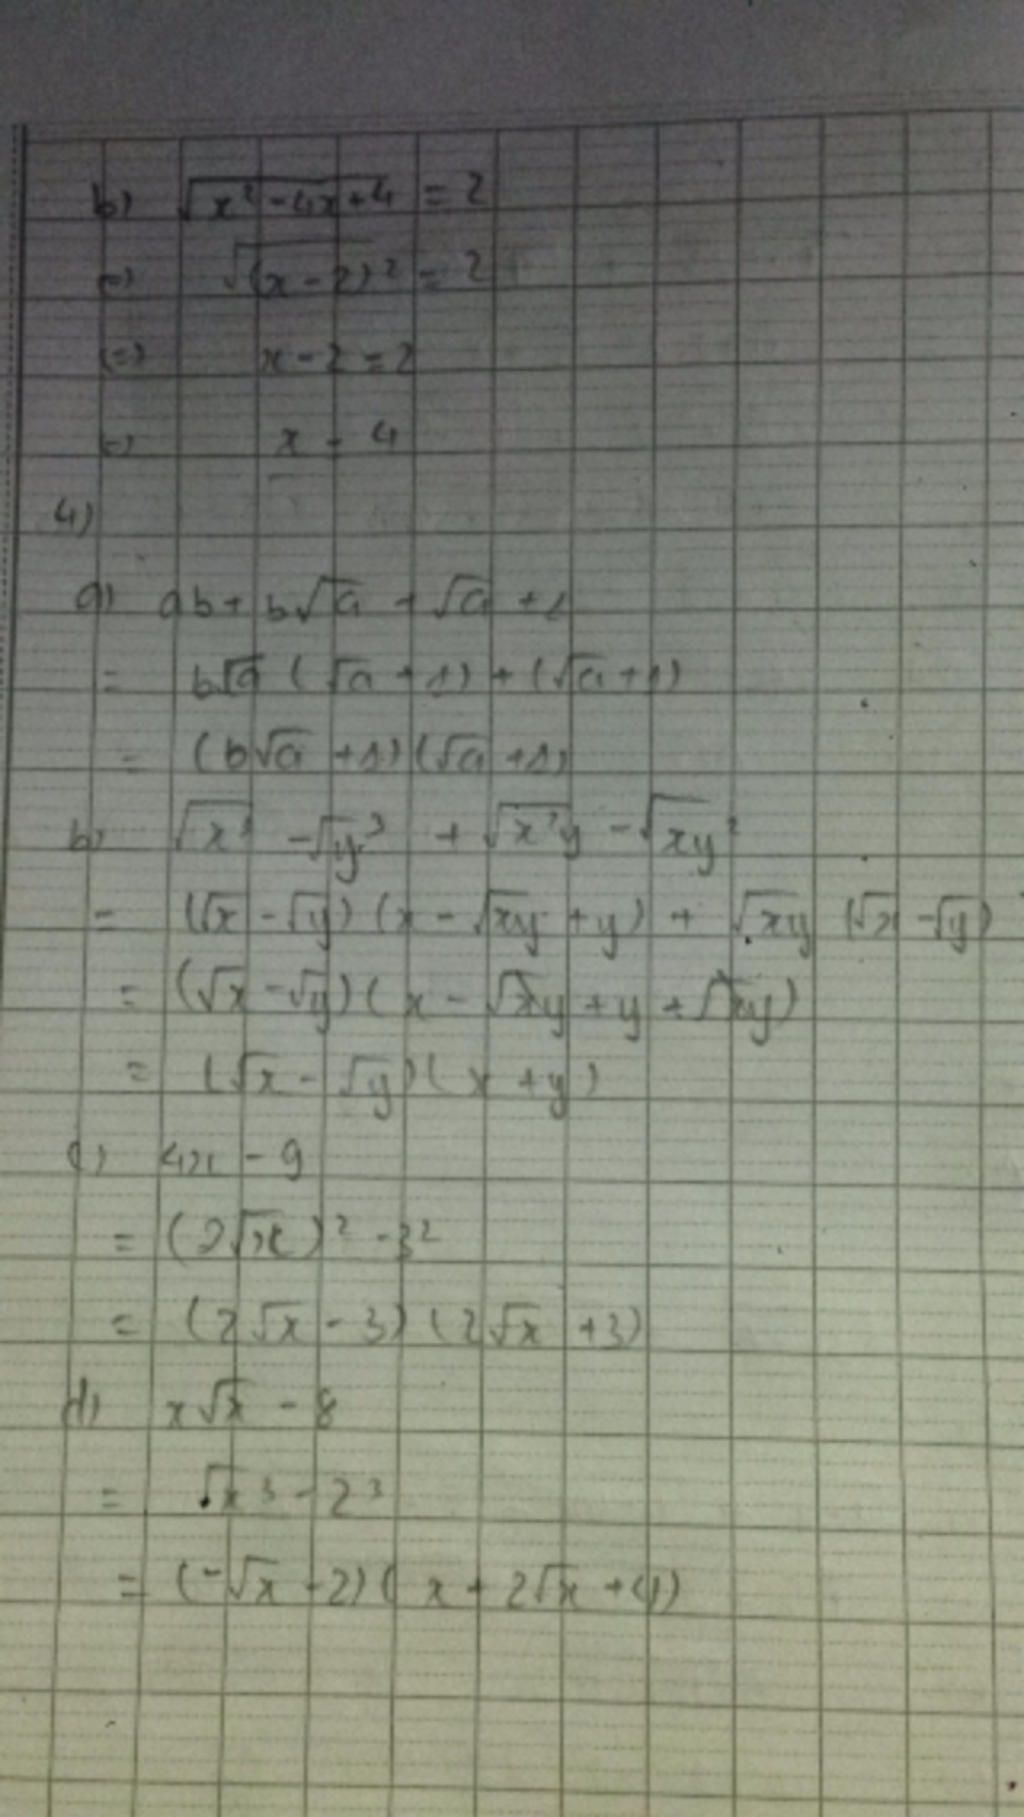 b) √(x² - 4x + 4) = 2
<=> √((x - 2)²) = 2
<=> x - 2 = 2
<=> x = 4
4)
a) ab + b√a + √a + 1
= b√a (√a + 1) + (√a + 1)
= (b√a + 1) (√a + 1)
b) √x³ - √y³ + √x²y - √xy²
= (√x - √y) (x - √xy + y) + √xy (√x - √y)
= (√x - √y) (x - √xy + y + √xy)
= (√x - √y) (x + y)
c) 4x - 9
= (2√x)² - 3²
= (2√x - 3) (2√x + 3)
d) x√x - 8
= √x³ - 2³
= (-√x - 2) (x + 2√x + 4)